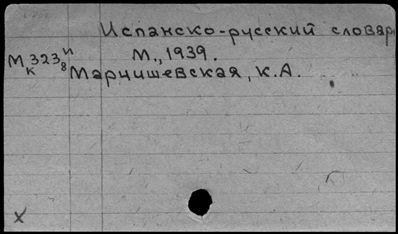 Испанско-русский словарь
М 323 и
к 8
М., 1939.
Марцишевская, К.А.
х